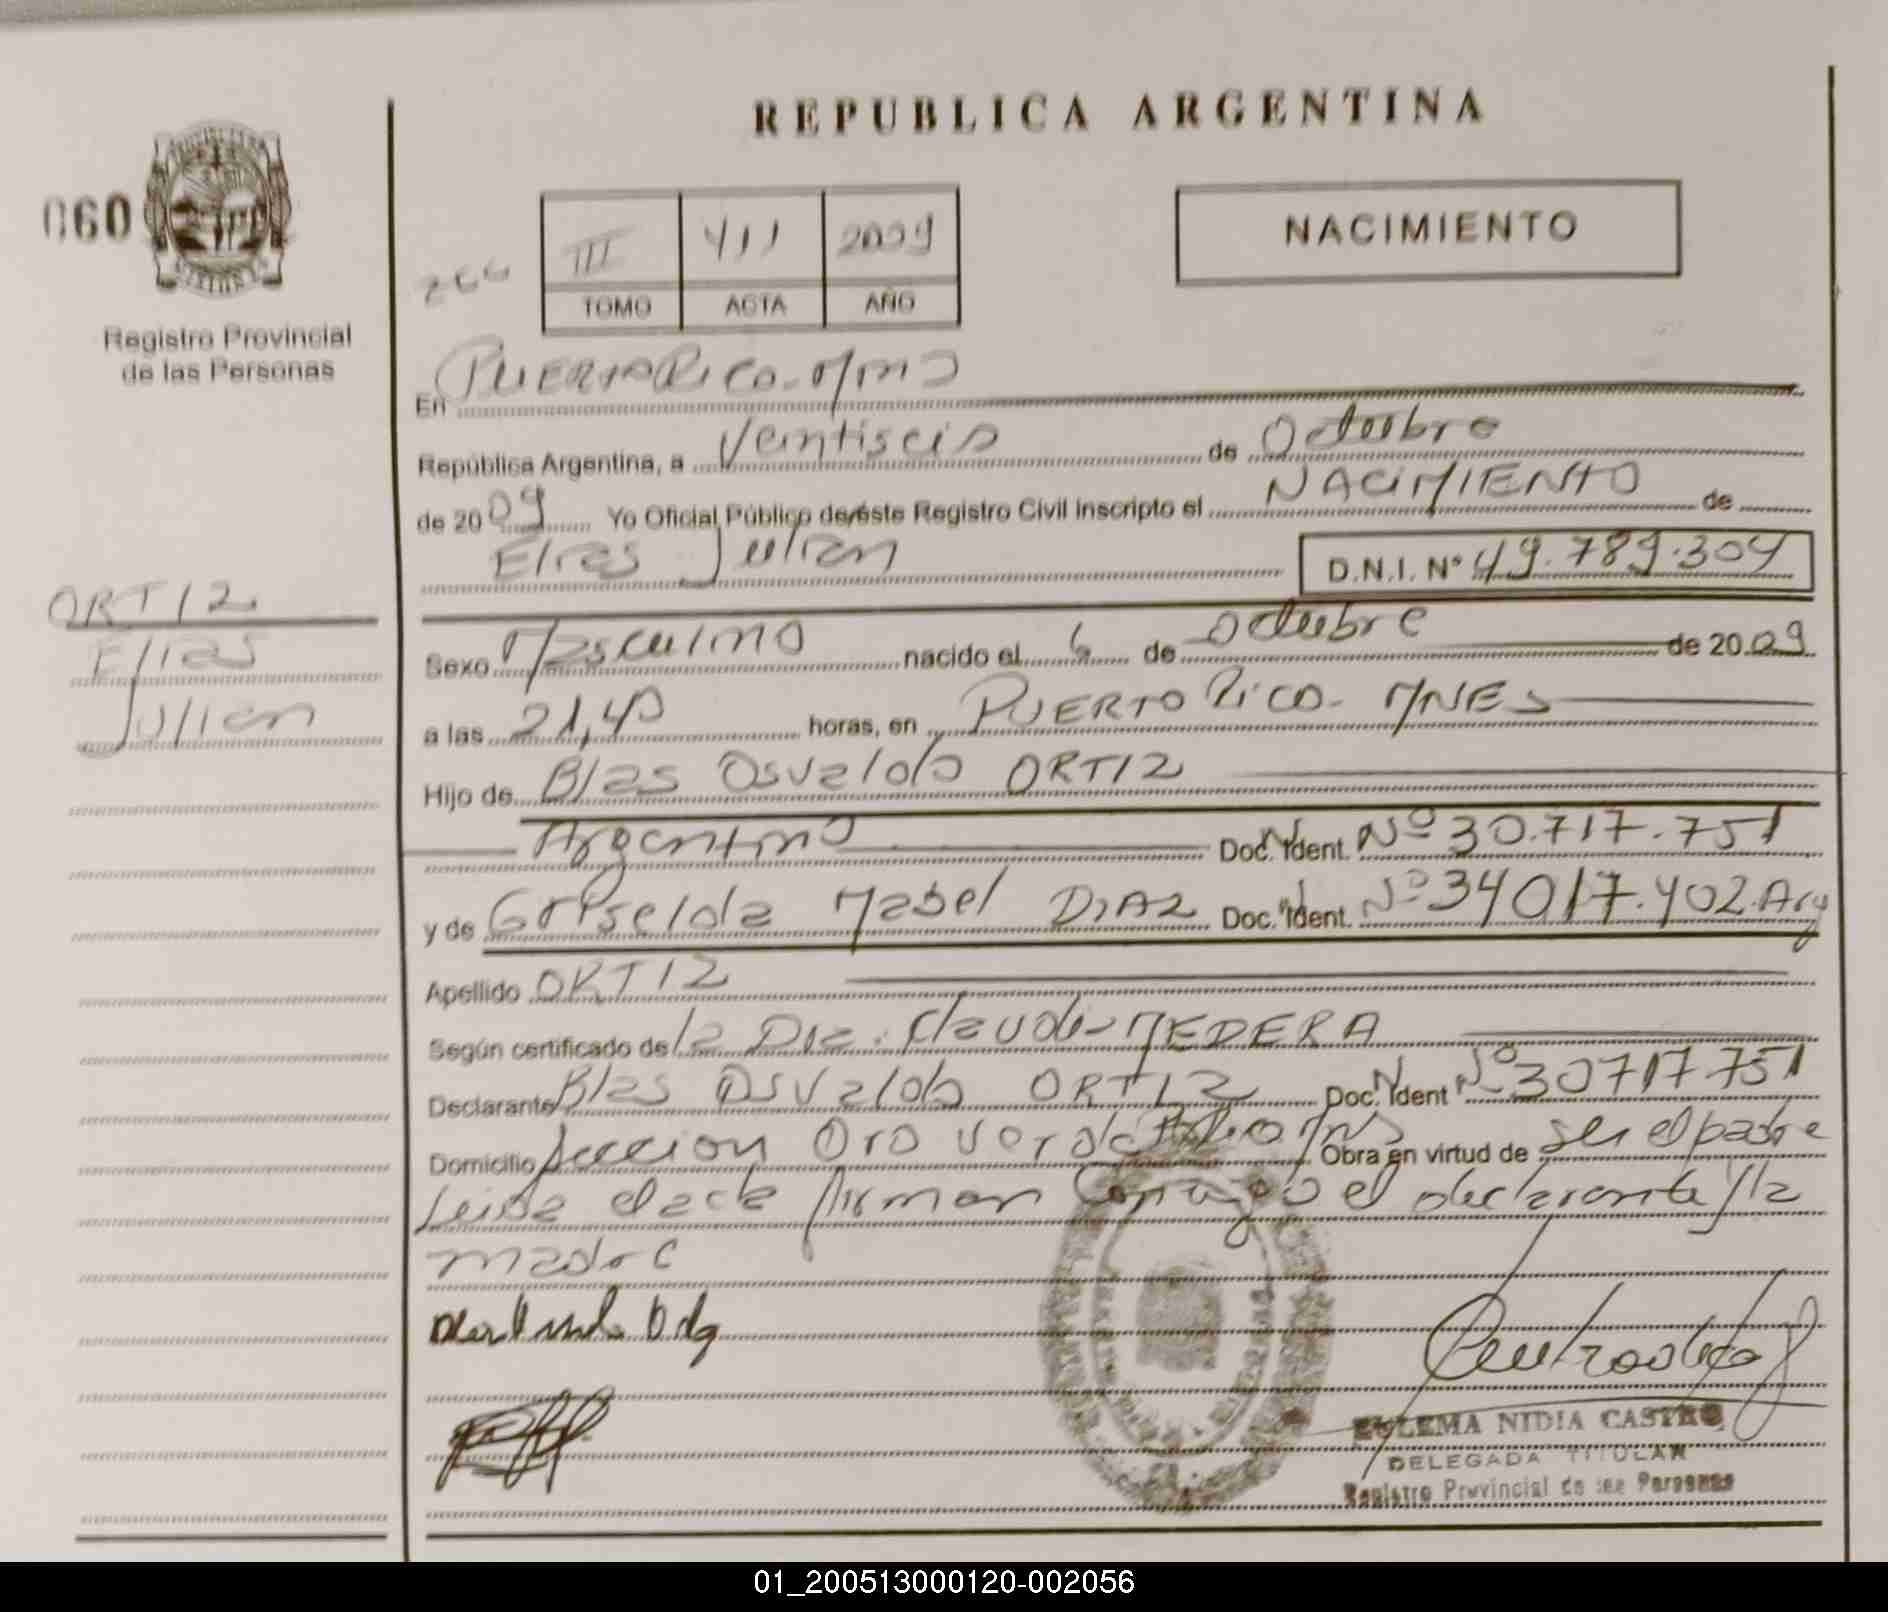 REPUBLICA ARGENTINA
060
NACIMIENTO
III 411 2009
266
TOMO ACTA AÑO
Registro Provincial
de las Personas
En PUERTO RICO - Mns
República Argentina, a Veintiseis de Octubre
de 2009 Yo Oficial Público de éste Registro Civil Inscripto el NACIMIENTO de
Elias Julian D.N.I. Nº 49.789.304
ORTIZ
Elias
Julian
Sexo Masculino nacido el 6 de octubre de 2009
a las 21,40 horas, en PUERTO RICO - MNES
Hijo de Blas Osvaldo ORTIZ
Argentino Doc. Ident. Nº 30.717.751
y de Griselda Mabel DIAZ Doc. Ident. Nº 34017.402 Arg
Apellido ORTIZ
Según certificado de la Dra. Claudia MEDERA
Declarante Blas Osvaldo ORTIZ Doc. Ident Nº 30717751
Domicilio Seccion Oro Verde Obra en virtud de ser el padre
Leida el acta firman Conmigo el declarante y la
madre
EGLEMA NIDIA CASTRO
DELEGADA TITULAR
Registro Provincial de las Personas
01_200513000120-002056